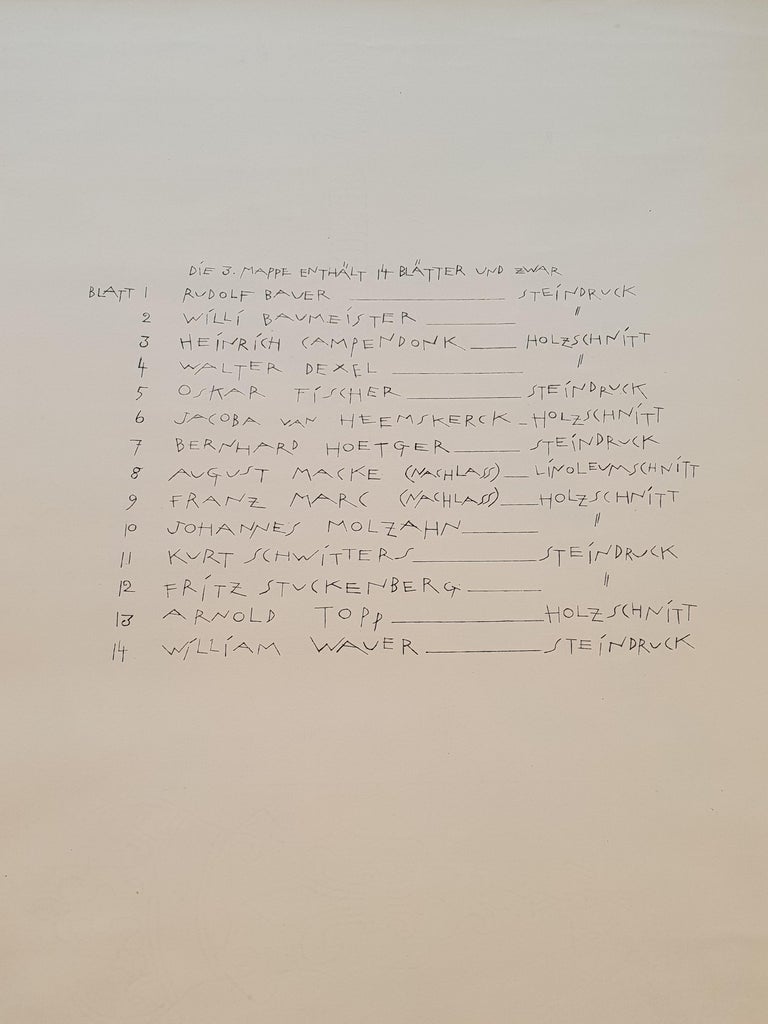 DIE 3. MAPPE ENTHÄLT 14 BLÄTTER UND ZWAR
BLATT 1 RUDOLF BAUER STEINDRUCK
2 WILLI BAUMEISTER "
3 HEINRICH CAMPENDONK HOLZSCHNITT
4 WALTER DEXEL "
5 OSKAR FISCHER STEINDRUCK
6 JACOBA VAN HEEMSKERCK HOLZSCHNITT
7 BERNHARD HOETGER STEINDRUCK
8 AUGUST MACKE (NACHLASS) LINOLEUMSCHNITT
9 FRANZ MARC (NACHLASS) HOLZSCHNITT
10 JOHANNES MOLZAHN "
11 KURT SCHWITTERS STEINDRUCK
12 FRITZ STUCKENBERG "
13 ARNOLD TOPP HOLZSCHNITT
14 WILLIAM WAUER STEINDRUCK